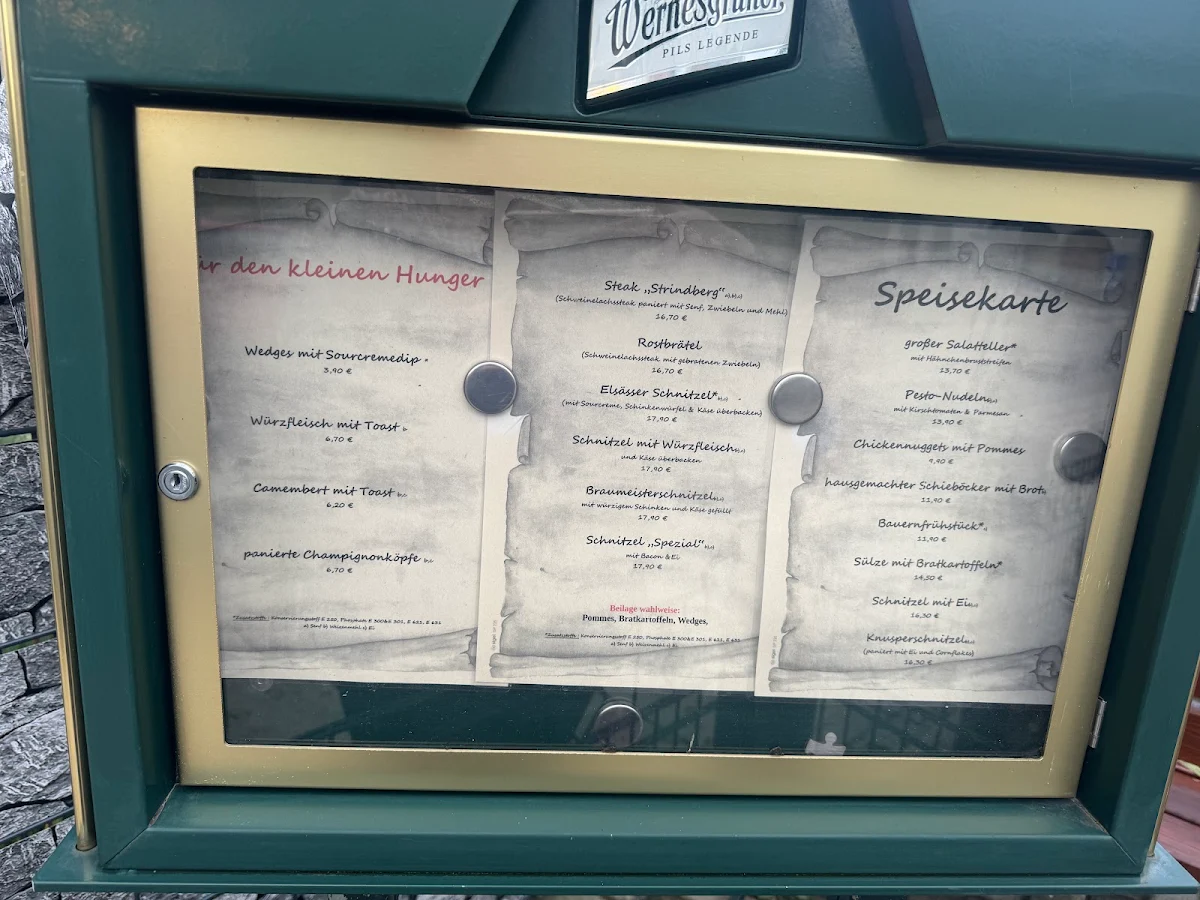 Wernesgrüner
PILS LEGENDE
ür den kleinen Hunger
Wedges mit Sourcremedip
3,90 €
Würzfleisch mit Toast
6,70 €
Camembert mit Toast
6,20 €
panierte Champignonköpfe
6,70 €
*Zusatzstoffe: Konservierungstoff E 250, Phosphate E 300bis 301, E 621, E 631
a) Senf b) Weizenmehl c) Ei
Steak „Strindberg“
(Schweinelachssteak paniert mit Senf, Zwiebeln und Mehl)
16,70 €
Rostbrätel
(Schweinelachssteak mit gebratenen Zwiebeln)
16,70 €
Elsässer Schnitzel*
(mit Sourcreme, Schinkenwürfel & Käse überbacken)
17,90 €
Schnitzel mit Würzfleisch
und Käse überbacken
17,90 €
Braumeisterschnitzel
mit würzigem Schinken und Käse gefüllt
17,90 €
Schnitzel „Spezial“
mit Bacon & Ei
17,90 €
Beilage wahlweise:
Pommes, Bratkartoffeln, Wedges,
*Zusatzstoffe: Konservierungstoff E 250, Phosphate E 300bis 301, E 621, E 631
a) Senf b) Weizenmehl c) Ei
Speisekarte
großer Salatteller*
mit Hähnchenbruststreifen
13,70 €
Pesto-Nudeln
mit Kirschtomaten & Parmesan
13,90 €
Chickennuggets mit Pommes
9,90 €
hausgemachter Schieböcker mit Brot
11,90 €
Bauernfrühstück*
11,90 €
Sülze mit Bratkartoffeln*
14,50 €
Schnitzel mit Ei
16,30 €
Knusperschnitzel
(paniert mit Ei und Cornflakes)
16,30 €